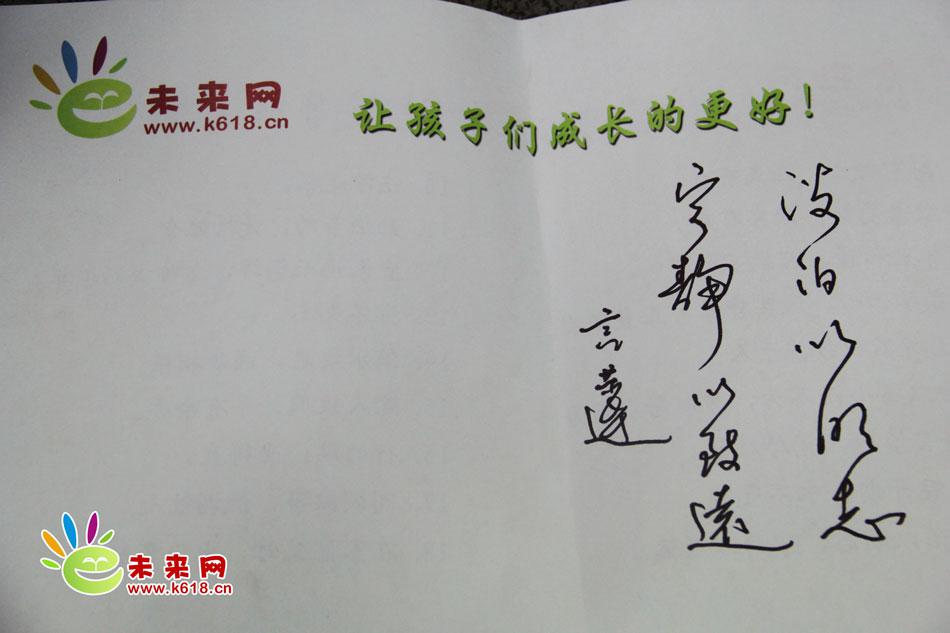 未来网
www.k618.cn
让孩子们成长的更好！
淡泊以明志
宁静以致远
言恭达
未来网
www.k618.cn